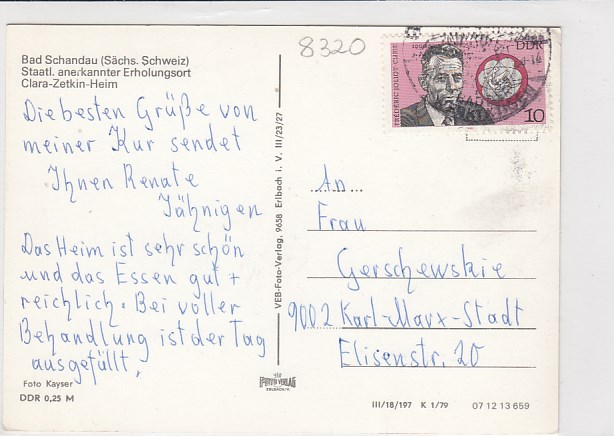 8320
Bad Schandau (Sächs. Schweiz)
Staatl. anerkannter Erholungsort
Clara-Zetkin-Heim
Die besten Grüße von
meiner Kur sendet
Ihnen Renate
Jähnigen
Das Heim ist sehr schön
und das Essen gut +
reichlich. Bei voller
Behandlung ist der Tag
ausgefüllt.
Foto Kayser
DDR 0,25 M
VEB-Foto-Verlag, 9658 Erlbach i. V. III/23/27
FRÉDÉRIC JOLIOT-CURIE
DDR
10
An
Frau
Gerschewskie
9002 Karl-Marx-Stadt
Elisenstr. 20
FOTO VERLAG
ERLBACH/V.
III/18/197 K 1/79 07 12 13 659